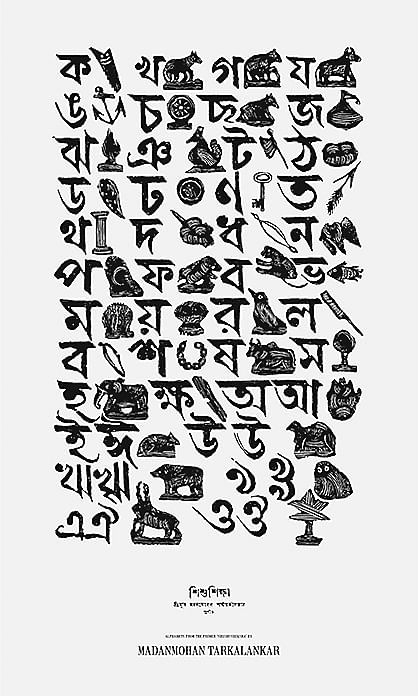 ক খ গ ঘ
ঙ চ ছ জ
ঝ ঞ ট ঠ
ড ঢ ণ ত
থ দ ধ ন
প ফ ব ভ
ম য় র ল
ব শ ষ স
হ ক্ষ অ আ
ই ঈ উ ঊ
ঋ ৠ ঌ ৡ
এ ঐ ও ঔ
শিশুশিক্ষা
ALPHABETS FROM THE PRIMER "SHISHUSHIKSHA" BY
MADANMOHAN TARKALANKAR